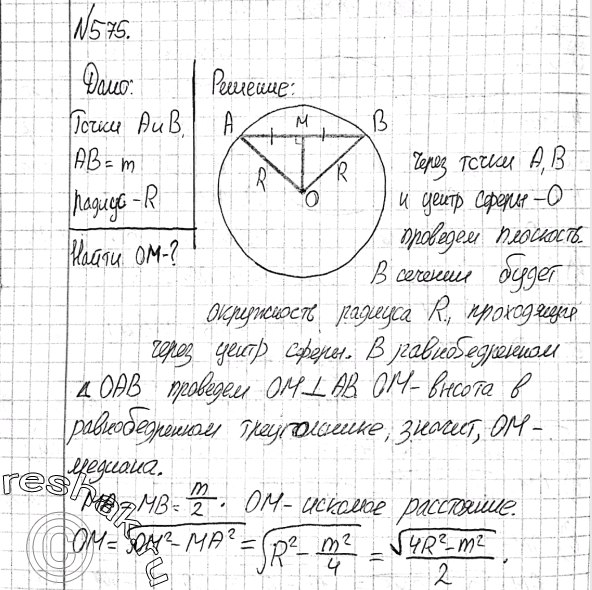 №575.
Дано:
Точки А и В.
АВ = m
радиус - R
Найти ОМ-?
Решение:
А М В
R R
О
Через точки А, В
и центр сферы - О
проведем плоскость.
В сечении будет
окружность радиуса R, проходящая
через центр сферы. В равнобедренном
△ ОАВ проведем ОМ⊥АВ. ОМ- высота в
равнобедренном треугольнике, значит, ОМ-
медиана.
МА = МВ = m/2. ОМ- искомое расстояние.
ОМ = √(ОМ² - МА²) = √(R² - m²/4) = √(4R² - m²)/2.
reshak.ru
©